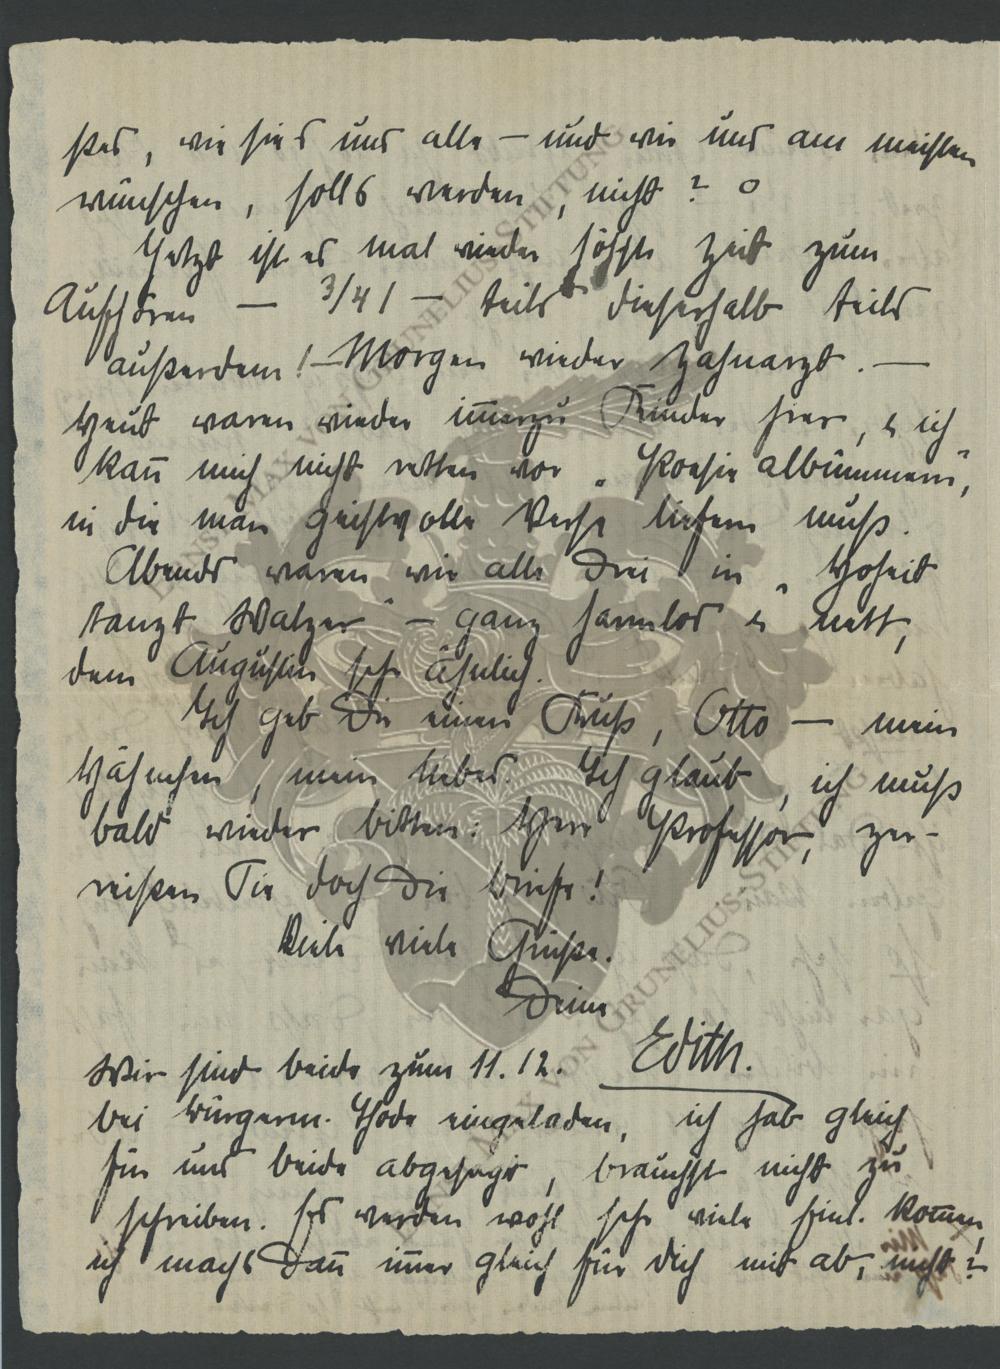 ßes, wie sie's uns alle — und wir uns am meisten
wünschen, solls werden, nicht? o
Jetzt ist es mal wieder höchste Zeit zum
Aufhören — 3/4 1 — teils dieserhalb teils
außerdem! — Morgen wieder Zahnarzt. —
Heut waren wieder im̅erzu Kinder hier, u ich
kan̅ mich nicht retten vor „Poesie albümmern",
in die man geistvolle Verse liefern muß.
Abends waren wir alle drei in „Hoheit
tanzt Walzer" – ganz harmlos u nett,
dem Augustin sehr ähnlich.
Ich geb Dir einen Kuß, Otto — mein
Hähnchen, mein liebes. Ich glaub, ich muß
bald wieder bitten: Herr Professor, zer-
reißen Sie doch die Briefe!
Viele viele Grüße.
Deine
Edith.
Wir sind beide zum 11. 12.
bei Bürgerm. Thode eingeladen, ich hab gleich
für uns beide abgesagt, brauchst nicht zu
schreiben. Es werden wohl sehr viele Einl. kom̅en,
ich mach's dan̅ im̅er gleich für Dich mit ab, nicht?
ERNST MAX VON GRUNELIUS-STIFTUNG
MAX VON GRUNELIUS-STIFTUNG